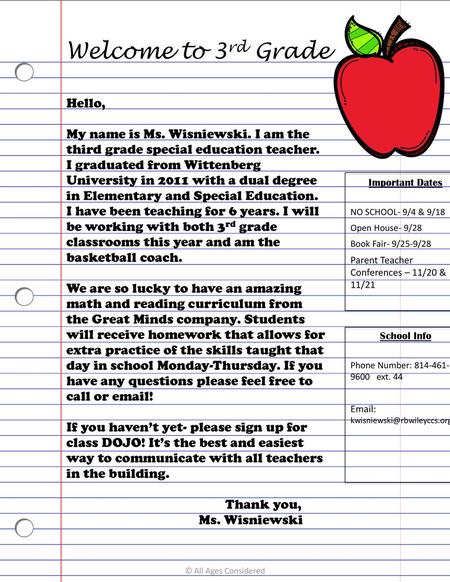 Welcome to 3rd Grade
Hello,
My name is Ms. Wisniewski. I am the
third grade special education teacher.
I graduated from Wittenberg
University in 2011 with a dual degree
in Elementary and Special Education.
I have been teaching for 6 years. I will
be working with both 3rd grade
classrooms this year and am the
basketball coach.
We are so lucky to have an amazing
math and reading curriculum from
the Great Minds company. Students
will receive homework that allows for
extra practice of the skills taught that
day in school Monday-Thursday. If you
have any questions please feel free to
call or email!
If you haven't yet- please sign up for
class DOJO! It's the best and easiest
way to communicate with all teachers
in the building.
Thank you,
Ms. Wisniewski
Important Dates
NO SCHOOL- 9/4 & 9/18
Open House- 9/28
Book Fair- 9/25-9/28
Parent Teacher
Conferences – 11/20 &
11/21
School Info
Phone Number: 814-461-
9600 ext. 44
Email:
kwisniewski@rbwileyccs.org
© All Ages Considered